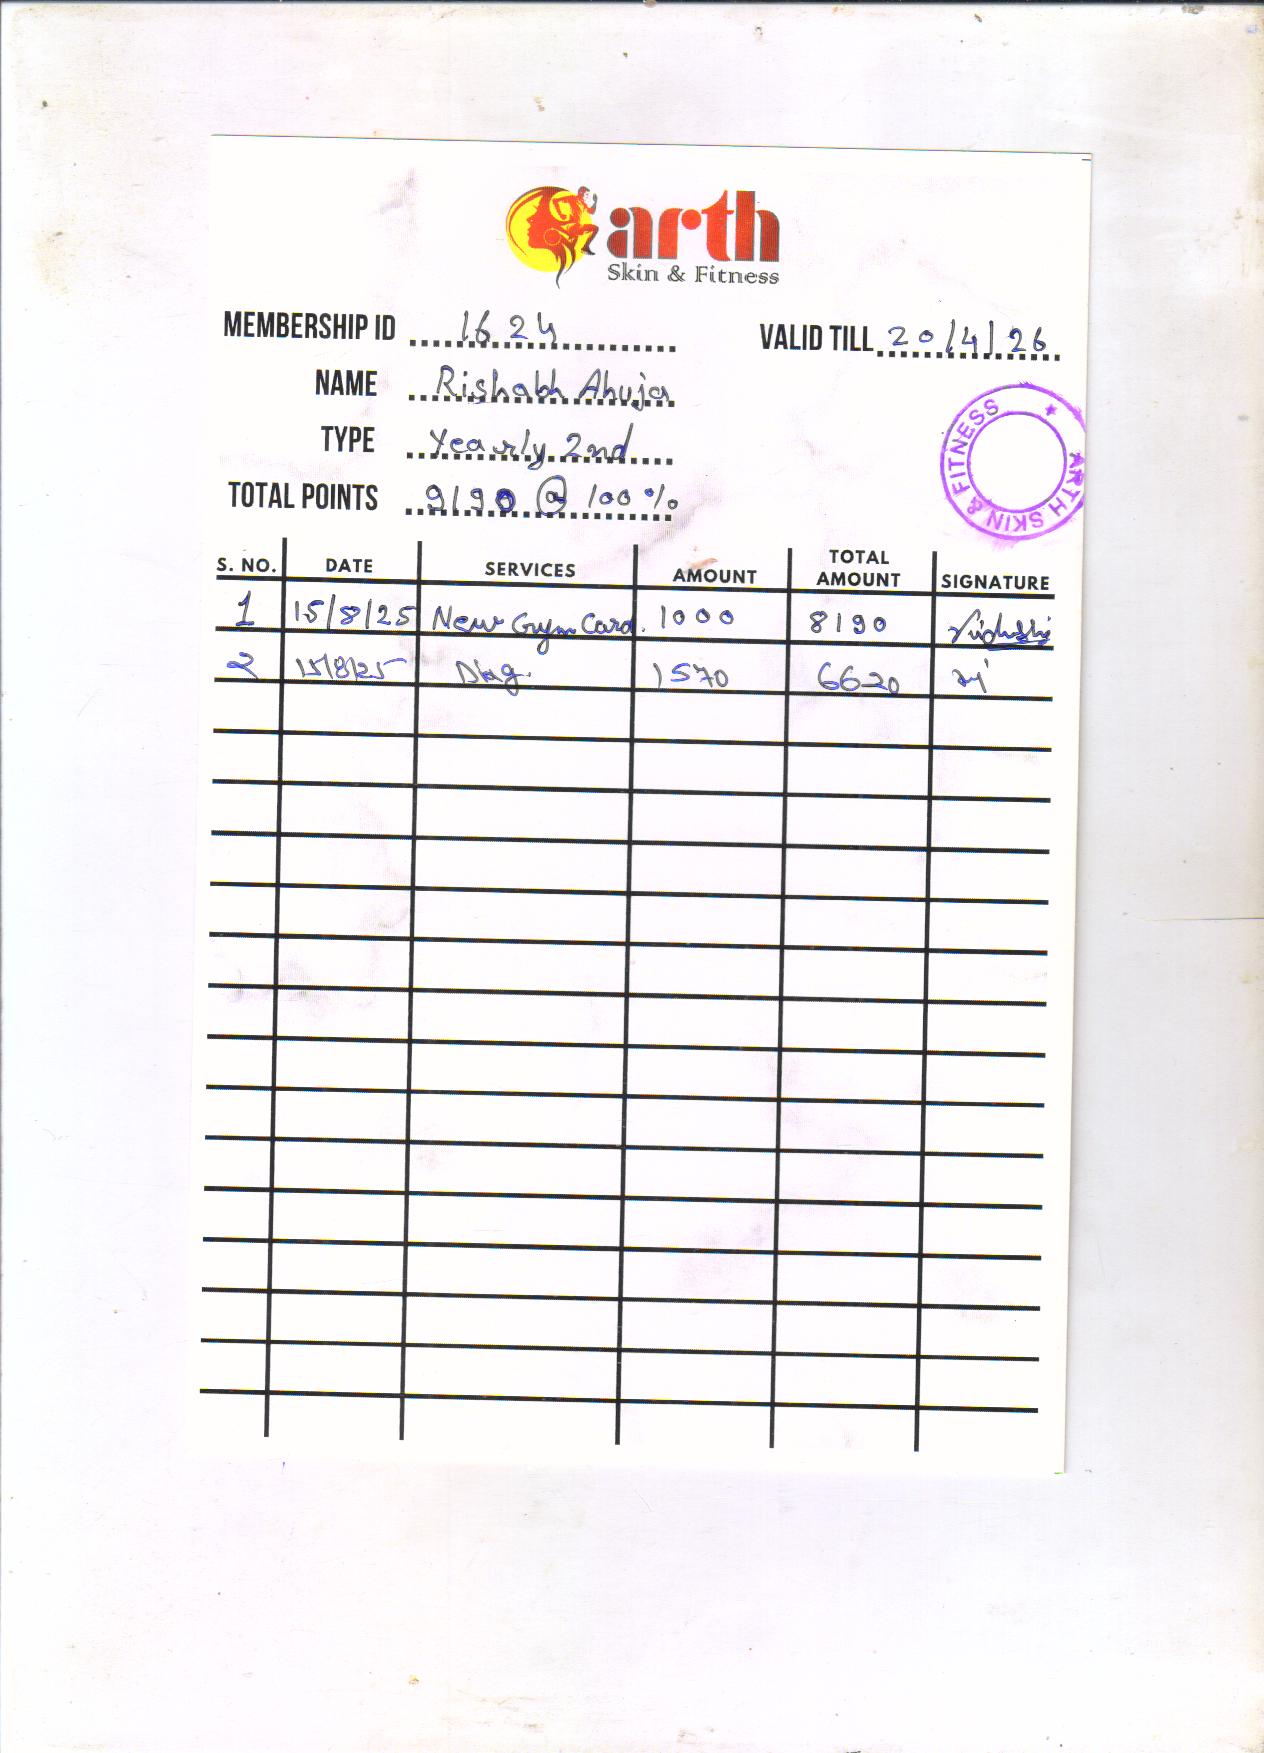 arth
Skin & Fitness
MEMBERSHIP ID 1624 VALID TILL 20/4/26
NAME Rishabh Ahuja
TYPE Yearly 2nd
TOTAL POINTS 9190 @ 100 %
ARTH SKIN & FITNESS
S. NO. DATE SERVICES AMOUNT TOTAL AMOUNT SIGNATURE
1 15/8/25 New Gym Card. 1000 8190
2 15/8/25 1570 6620